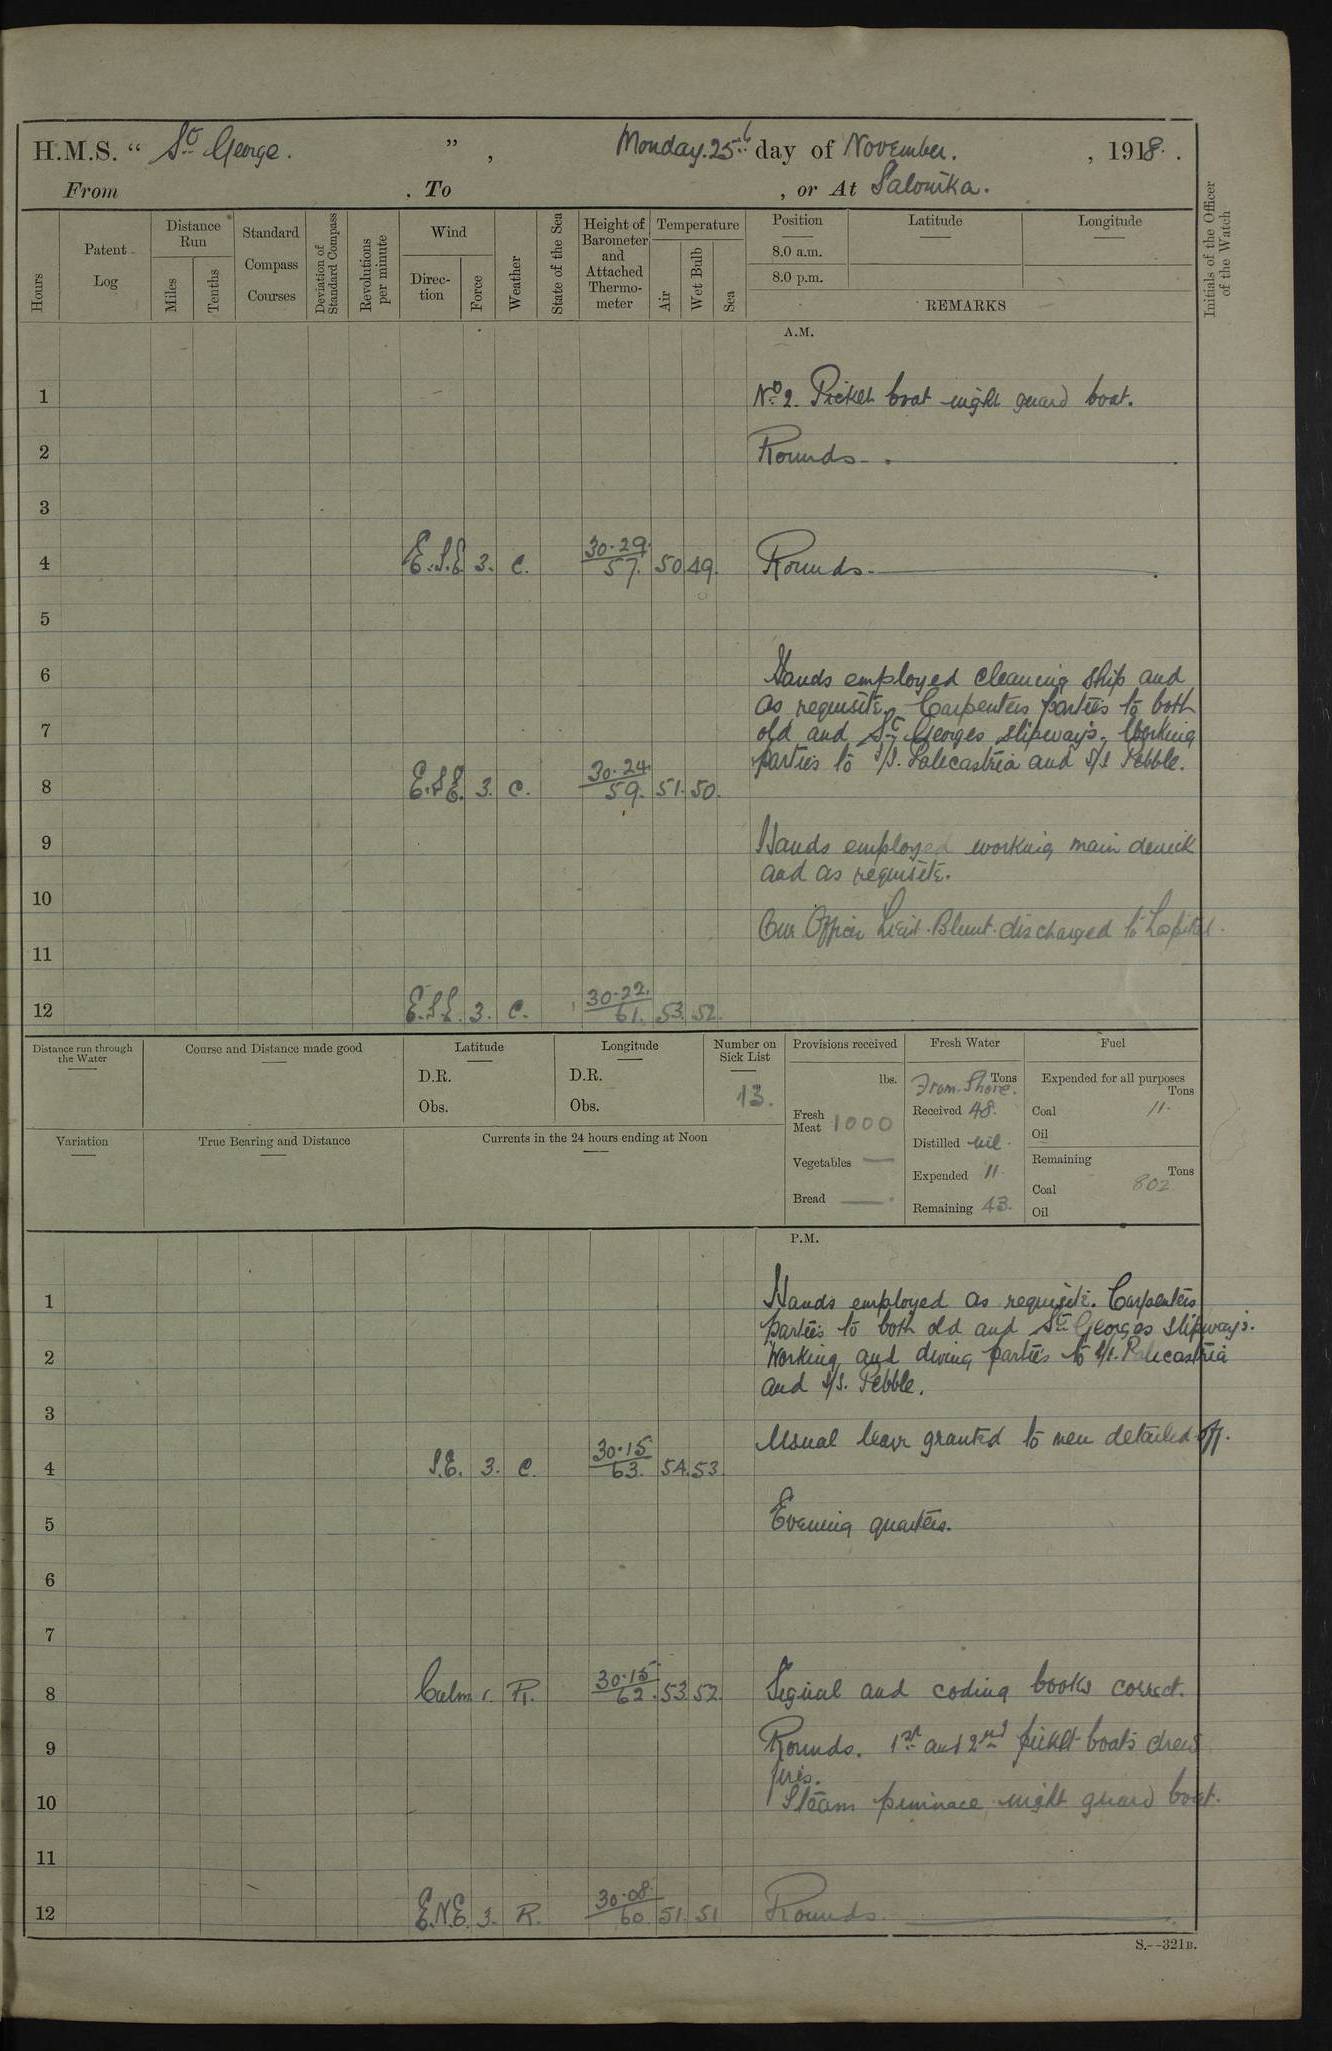 H.M.S. “ St George. ” , Monday. 25th day of November. , 1918.
From . To , or At Salonika.
Hours
Patent Log
Distance Run
Miles
Tenths
Standard Compass Courses
Deviation of Standard Compass
Revolutions per minute
Wind
Direction
Force
Weather
State of the Sea
Height of Barometer and Attached Thermometer
Temperature
Air
Wet Bulb
Sea
Position Latitude Longitude
8.0 a.m.
8.0 p.m.
REMARKS
Initials of the Officer of the Watch
A.M.
1 No 2. Picket boat night guard boat.
2 Rounds.
3
4 E.S.E 3. C. 30.29. 57. 50 49. Rounds.
5
6 Hands employed cleaning ship and
as requisite, Carpenters parties to both
7 old and St Georges slipways, Working
parties to S/S. Palecastria and S/S Pebble.
8 E.S.E. 3. C. 30.24. 59. 51. 50.
9 Hands employed working main derrick
and as requisite.
10 One Officer Lieut. Blunt. discharged to hospital.
11
12 E.S.E. 3. C. 30.22. 61. 53. 52.
Distance run through the Water
Course and Distance made good
Latitude
D.R.
Obs.
Longitude
D.R.
Obs.
Number on Sick List
13.
Provisions received
lbs.
Fresh Meat 1000
Vegetables —
Bread —
Fresh Water
Tons
From Shore.
Received 48.
Distilled nil.
Expended 11.
Remaining 43.
Fuel
Expended for all purposes
Tons
Coal 11.
Oil
Remaining
Tons
Coal 802
Oil
Variation
True Bearing and Distance
Currents in the 24 hours ending at Noon
P.M.
1 Hands employed as requisite. Carpenters
parties to both old and St Georges slipways.
2 Working and diving parties to S/S. Palecastria
and S/S. Pebble.
3 Usual leave granted to men detailed off.
4 S.E. 3. C. 30.15 63. 54. 53.
5 Evening quarters.
6
7
8 Calm 1. R. 30.15 62. 53. 52. Signal and coding books correct.
9 Rounds. 1st and 2nd picket boats drew
fires.
10 Steam pinnace night guard boat.
11
12 E.N.E. 3. R. 30.08. 60 51. 51 Rounds.
S.--321B.